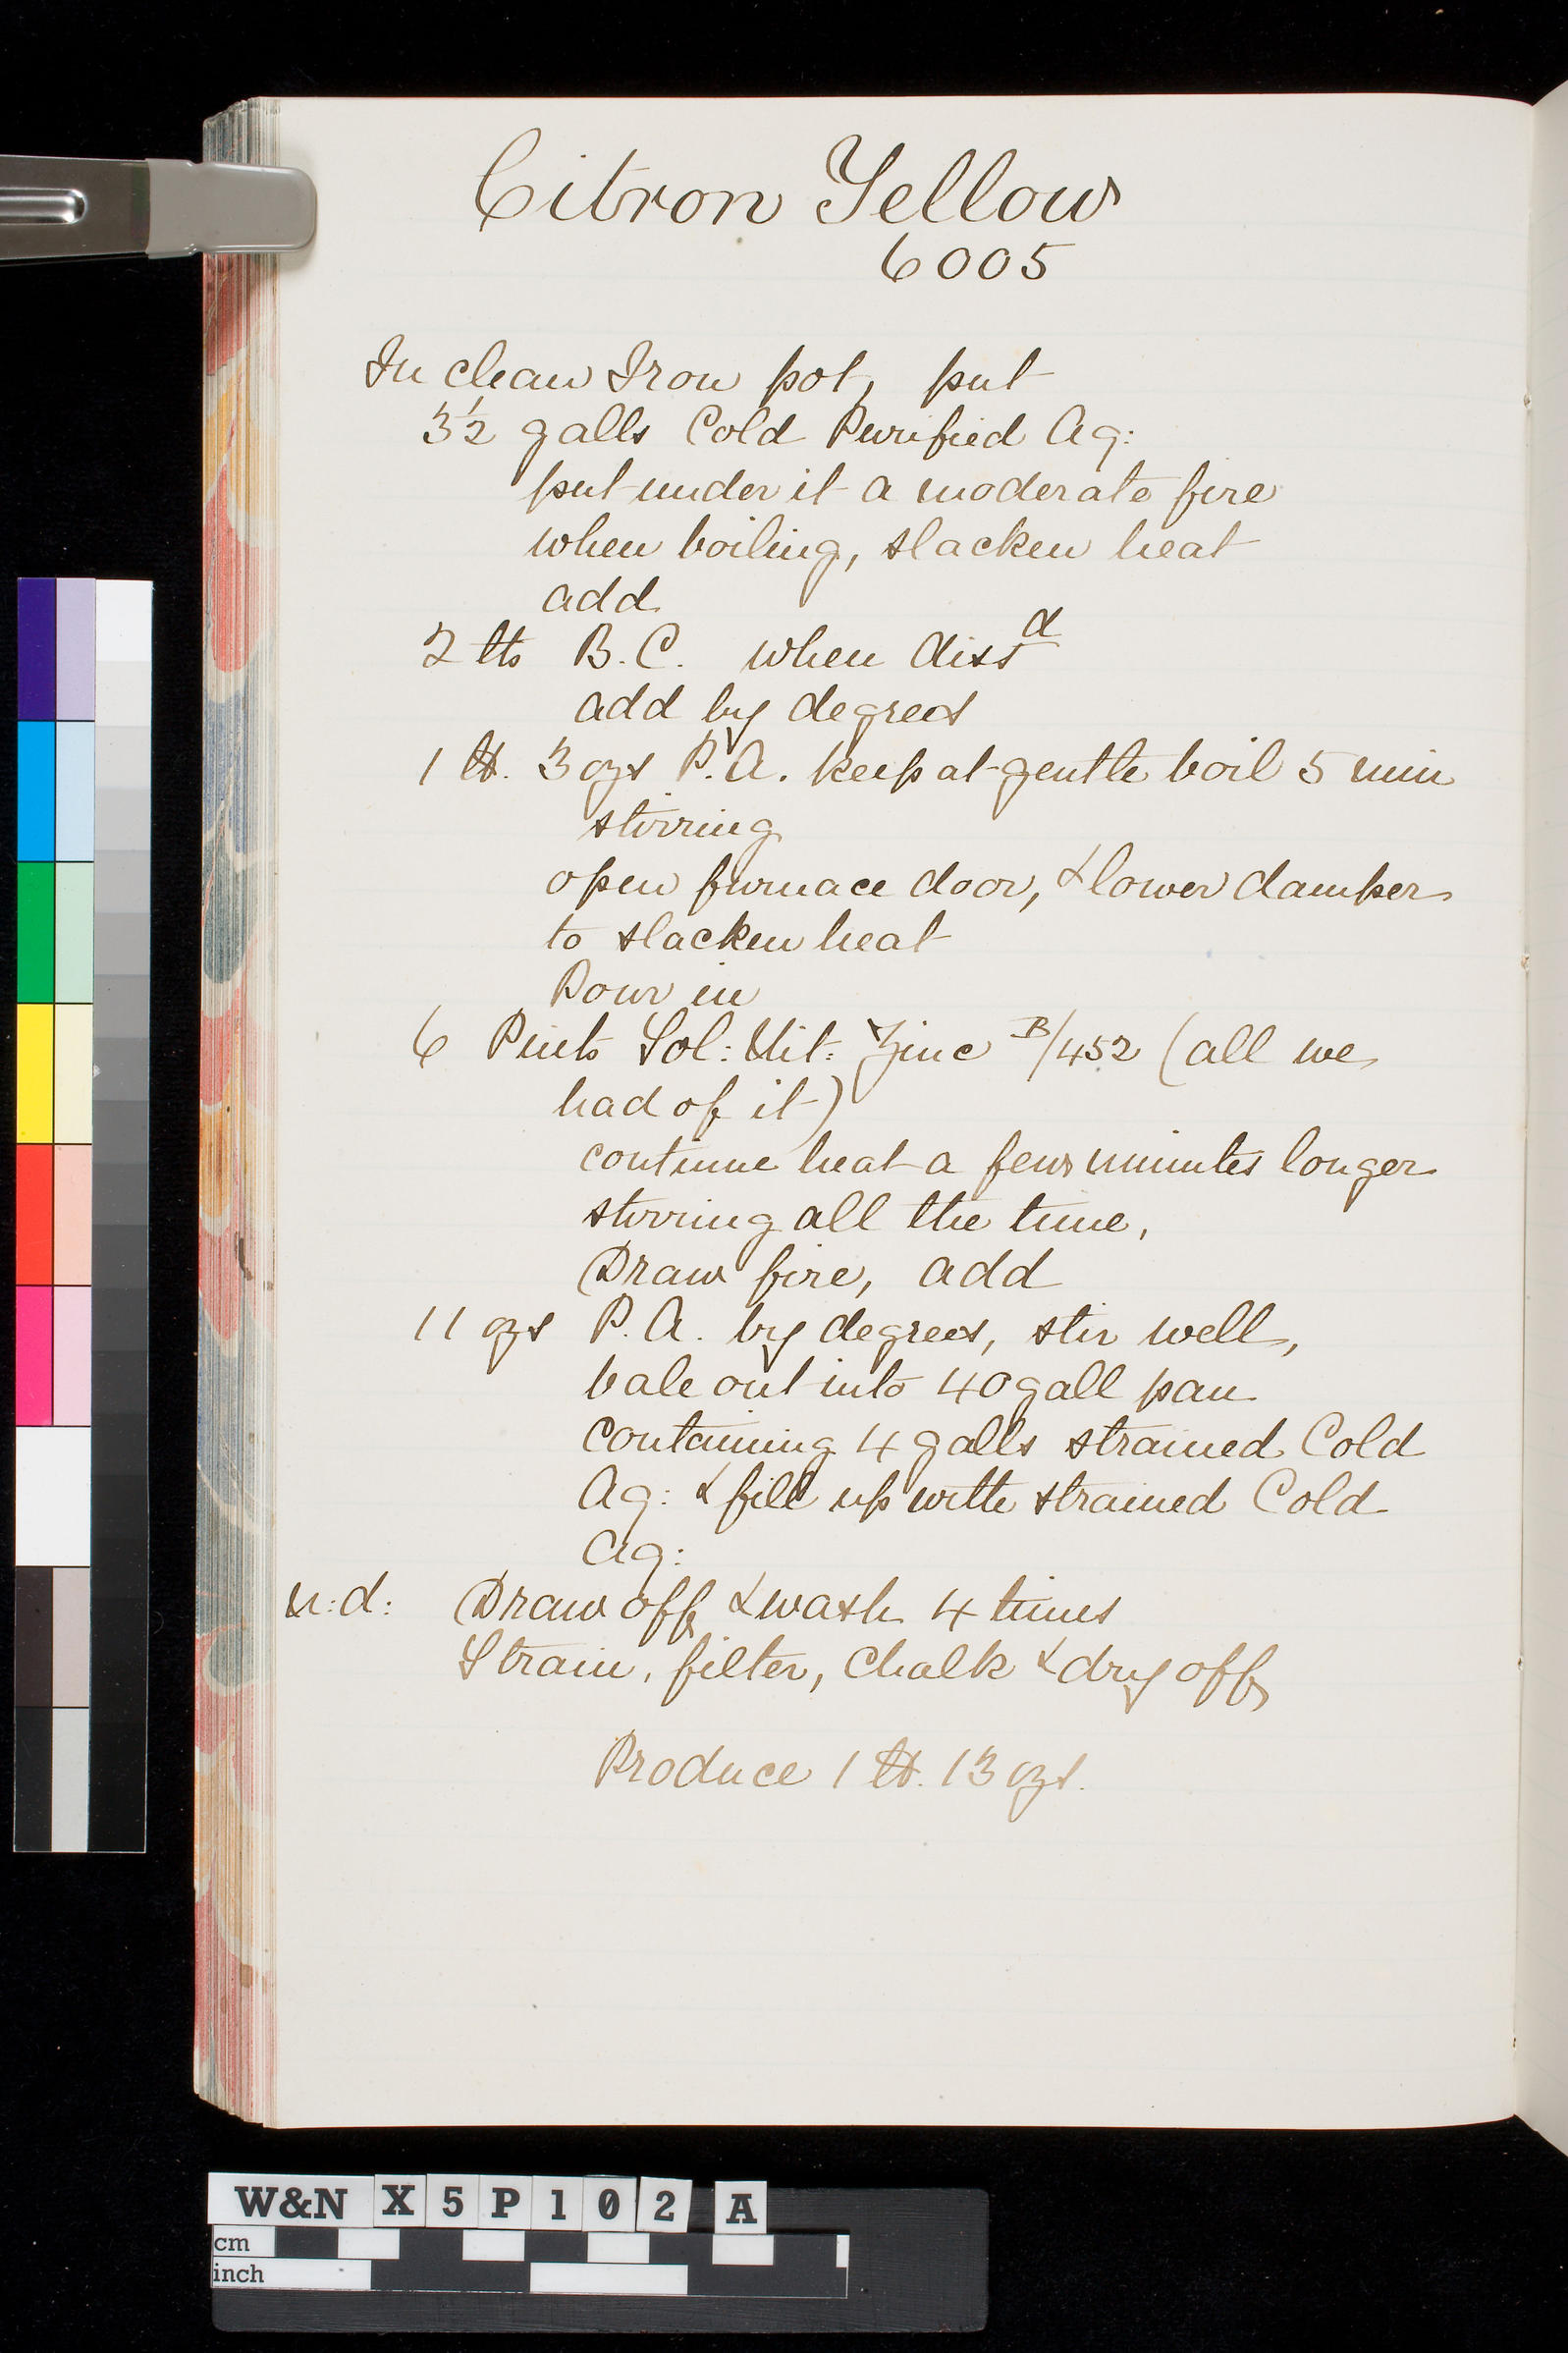 Citron Yellow
6005
In clean Iron pot, put
3½ galls Cold Purified Aq:
put under it a moderate fire
when boiling, slacken heat
add
2 lbs B.C. when diss^d
add by degrees
1 lb. 3 ozs P.A. keep at gentle boil 5 min
stirring
open furnace door, & lower damper
to slacken heat
Pour in
6 Pints Sol: Nit: Zinc B/452 (all we
had of it)
continue heat a few minutes longer
stirring all the time,
Draw fire, add
11 ozs P.A. by degrees, stir well,
bale out into 40 gall pan
containing 4 galls strained Cold
Aq: & fill up with strained Cold
Aq:
n:d: Draw off & wash 4 times
Strain, filter, Chalk & dry off
Produce 1 lb. 13 ozs.
W&N X5P102 A
cm
inch